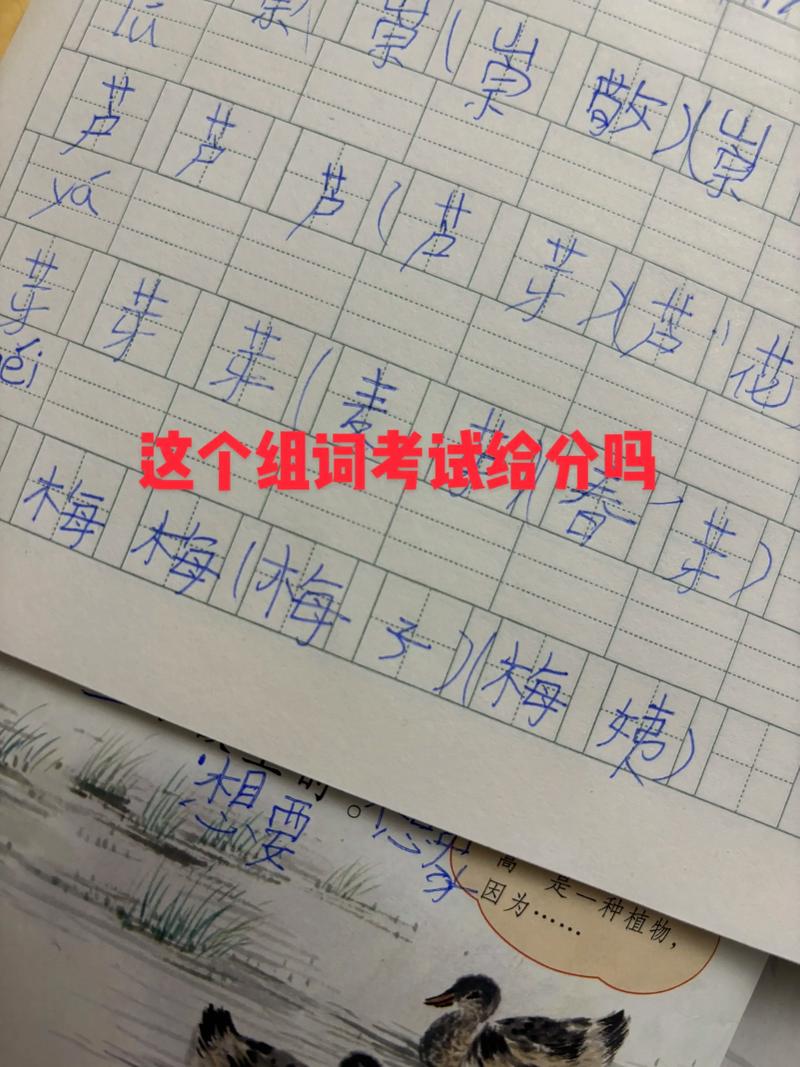 崇(崇敬)(崇
lú
芦芦芦(芦芽)(芦花
yá
芽芽芽(麦芽)(春芽)
这个组词考试给分吗
梅梅(梅子)(梅姨)
的。
想要
是一种植物，
因为……